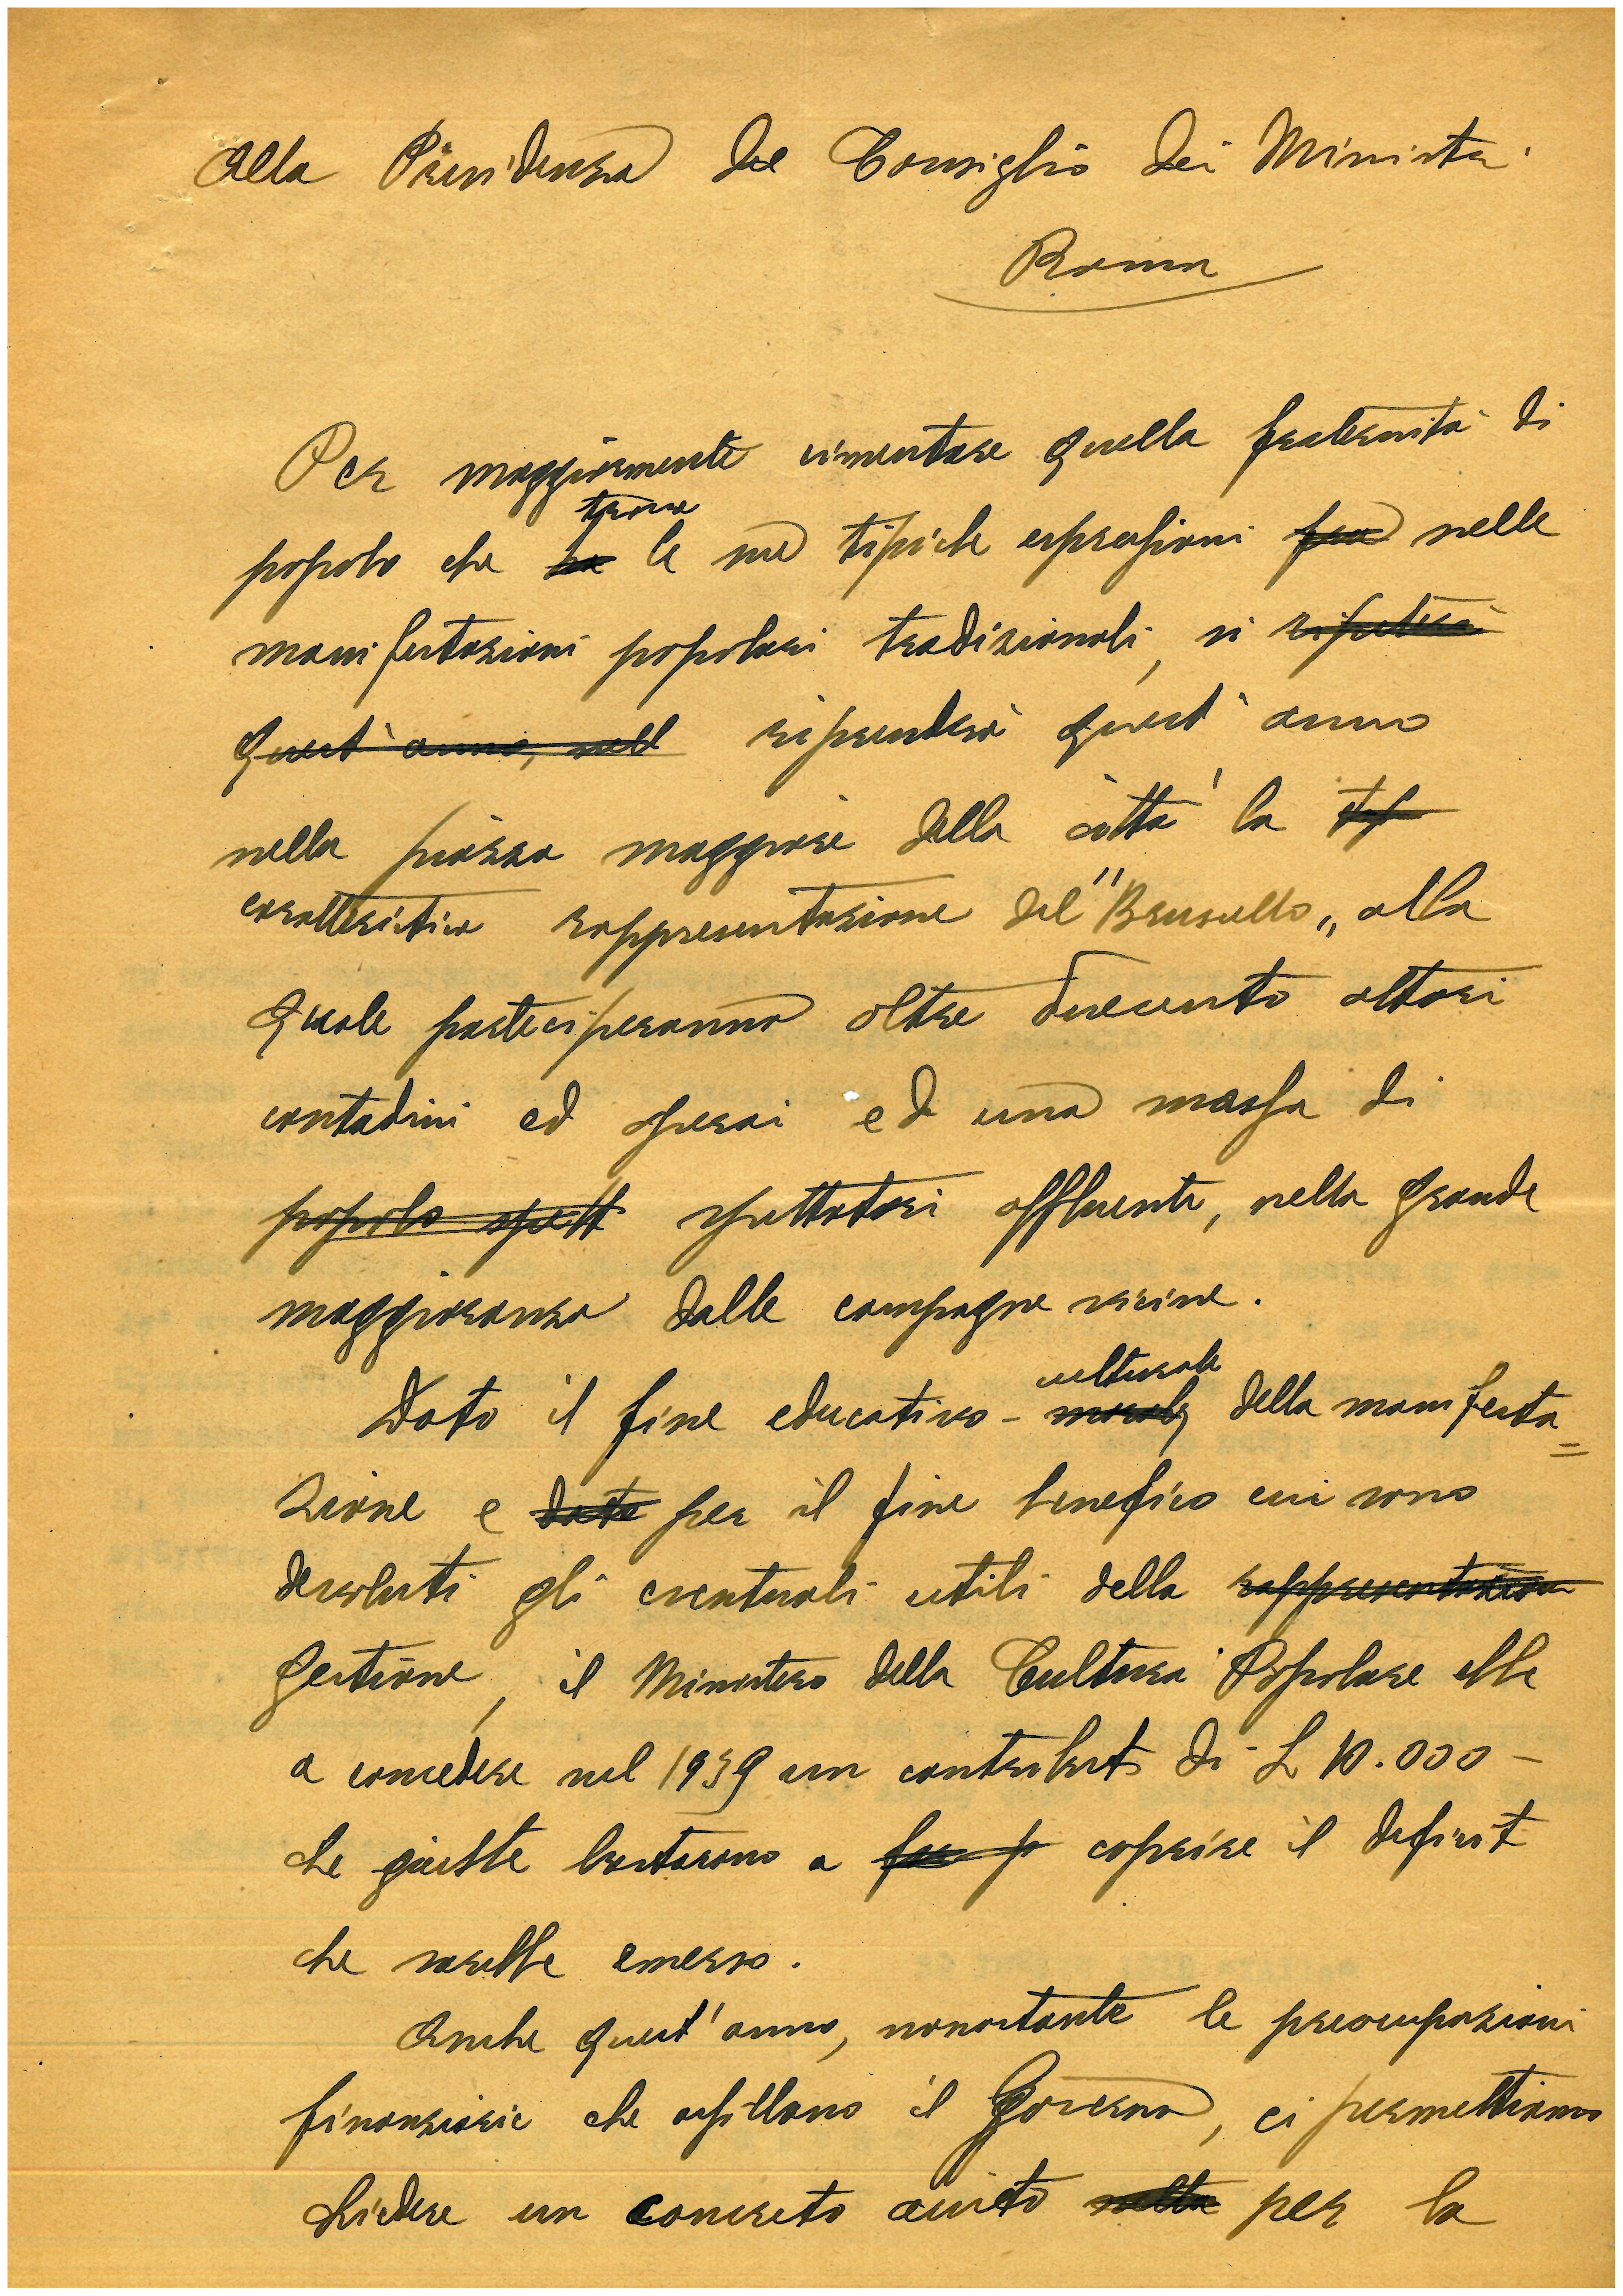 Alla Presidenza del Consiglio dei Ministri
Roma
Per maggiormente cimentare quella fraternità di
trova
popolo che ha le sue tipiche espressioni fra nelle
manifestazioni popolari tradizionali, si ripeterà
quest'anno, nell riprenderà quest'anno
nella piazza maggiore della città la tip
caratteristica rappresentazione del "Bruscello" alla
quale parteciperanno oltre duecento attori
contadini ed operai ed una massa di
popolo spett spettatori affluenti, nella grande
maggioranza dalle campagne vicine.
culturale
Dato il fine educativo - morale della manifesta=
zione e dato per il fine benefico cui sono
devoluti gli eventuali utili della rappresentazion
gestione, il Ministero della Cultura Popolare ebbe
a concedere nel 1939 un contributo di L 10.000 -
che giuste bastarono a far p coprire il deficit
che sarebbe emerso.
Anche quest'anno, nonostante le preoccupazioni
finanziarie che assillano il Governo, ci permettiamo
chiedere un concreto aiuto per la